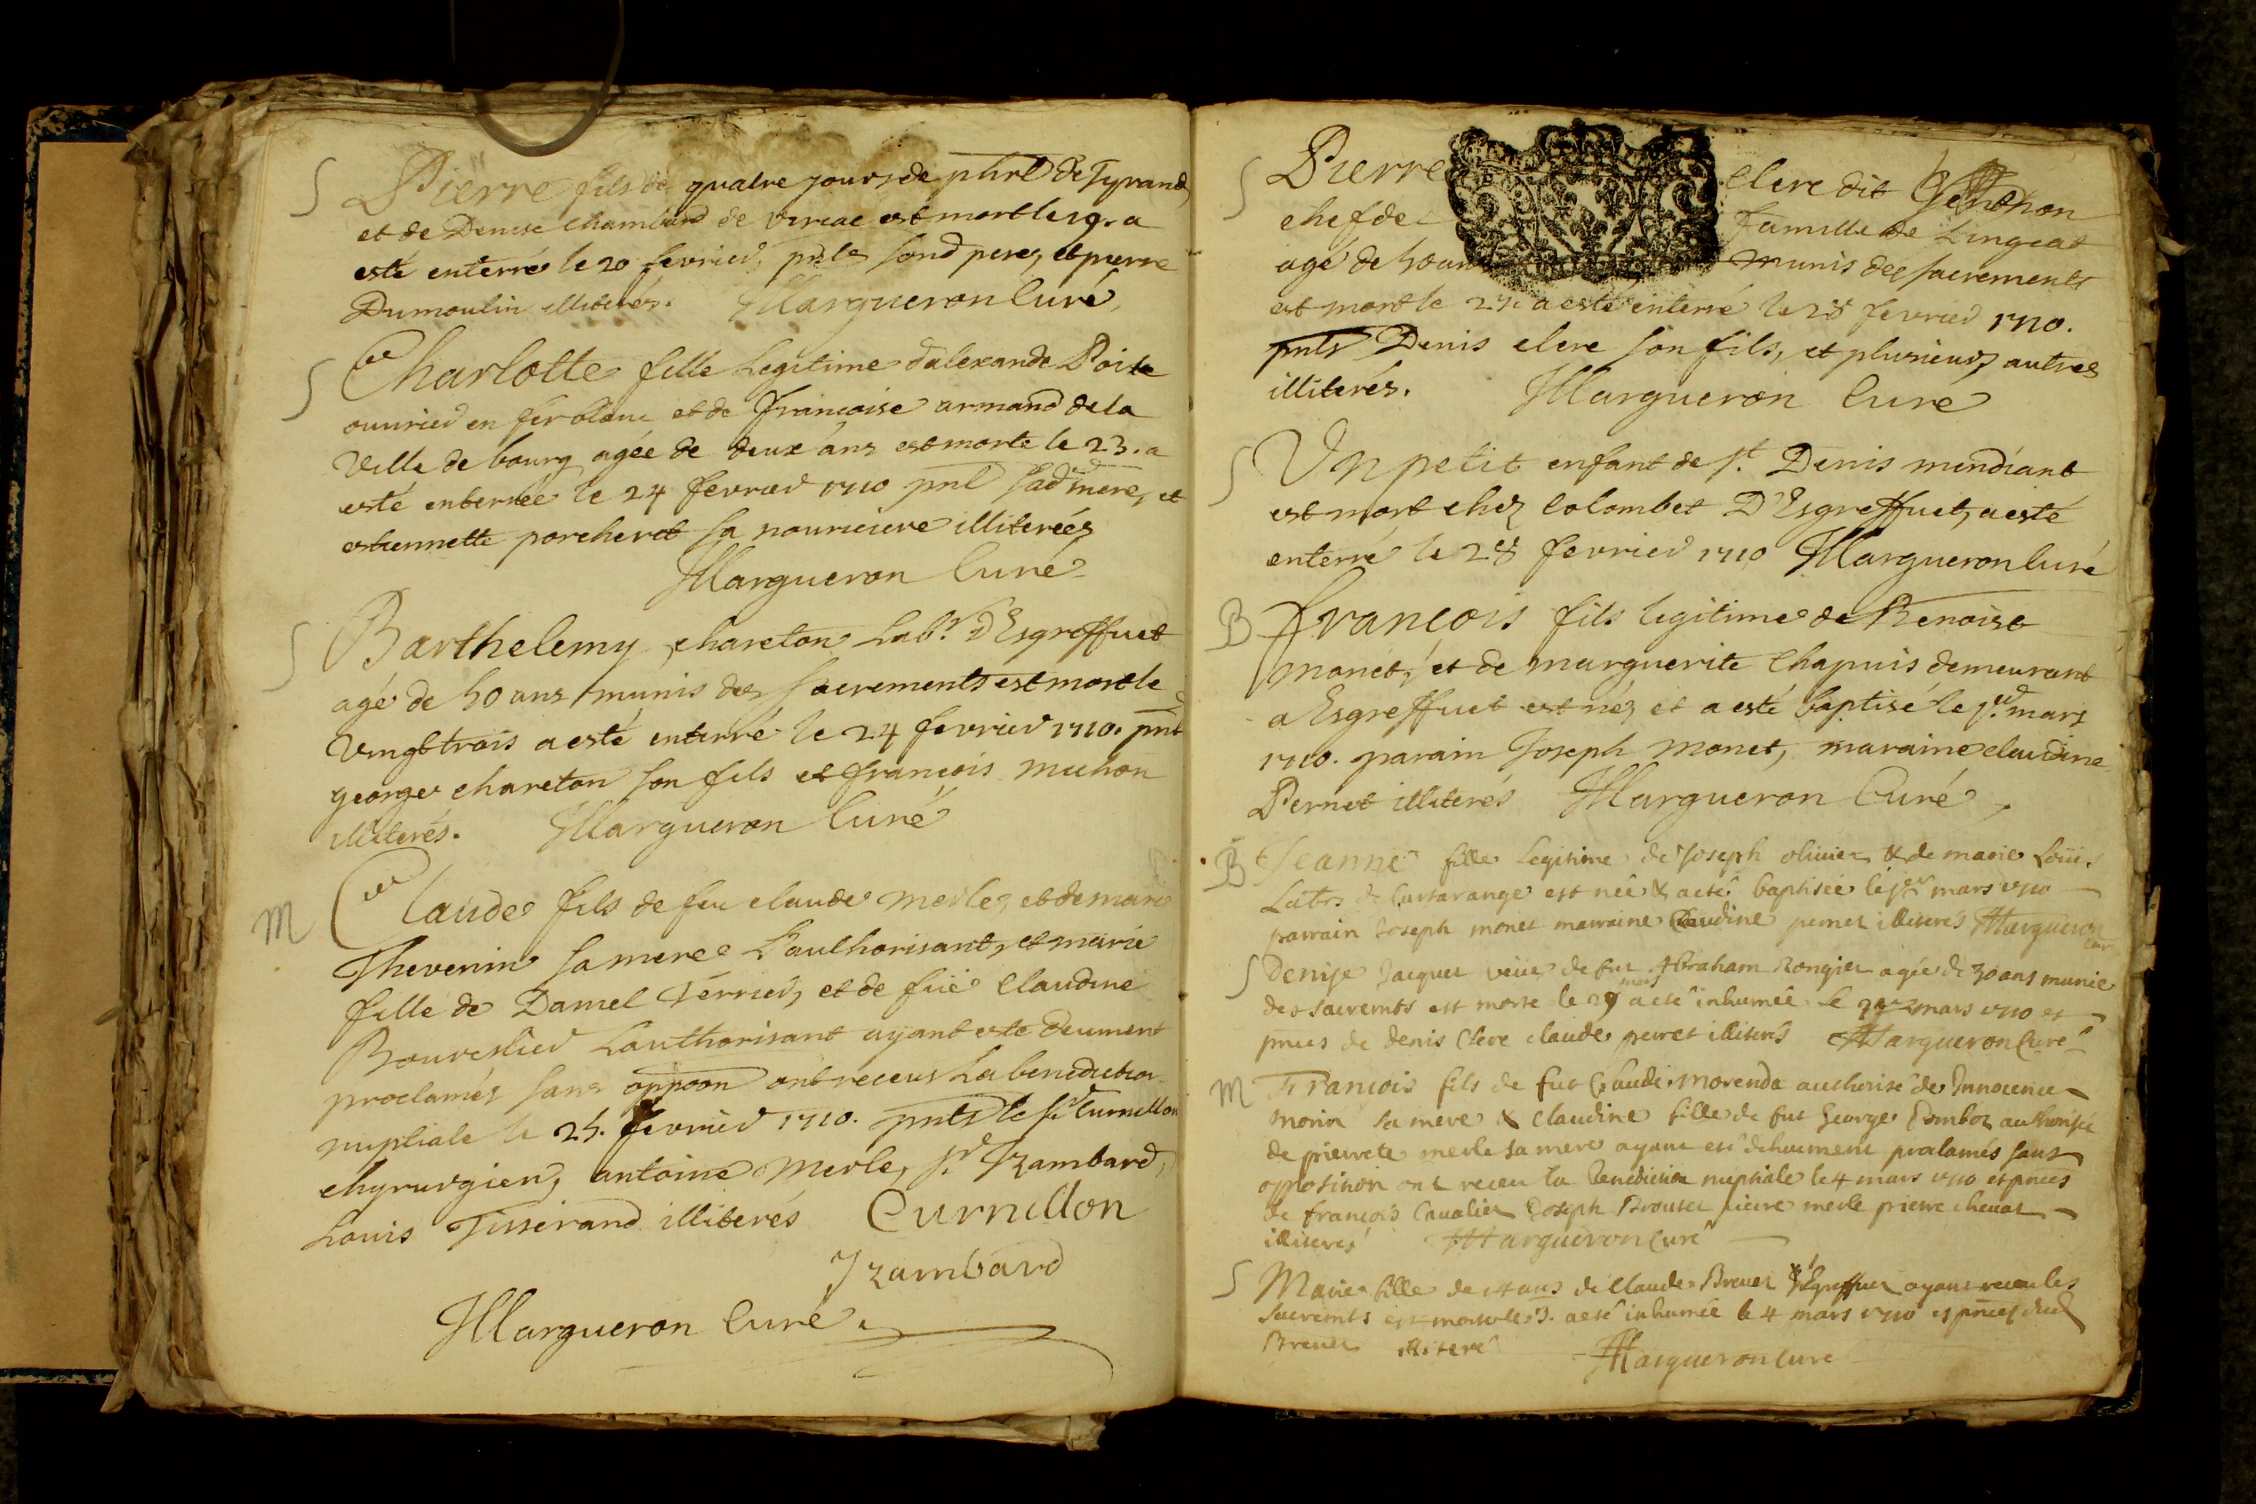 S Pierre fils de quatre jours de phil de Tyrand
et de Denise Chambard de viriac est mort le 19. a
esté enterré le 20 fevrier, pnts sond pere, et pierre
Dumoulin illiterés. Margueron Curé
S Charlotte fille Legitime d'alexandre Poite
ouvrier en fer blanc et de françoise armand de la
Ville de bourg agée de deux ans est morte le 23. a
esté enterrée le 24 fevrier 1710 pnt sad mere, et
estiennette porcheret sa nouriciere illiterées
Margueron Curé
S Barthelemy chareton Labr. D'Esgreffuet
agé de 50 ans munis des sacrements est mort le
Vingt trois a esté enterré le 24 fevrier 1710. pnt
george chareton son fils et françois michon
illiterés. Margueron Curé
M Claude fils de feu claude Merle, et de marie
Thevenin sa mere L'authorisant, et marie
fille de Daniel Verrier, et de fuë Claudine
Bouvestier Lauthorisant ayant esté Deument
proclamés sans oppoon ont receus La benediction
nuptiale le 25. fevrier 1710. pnts le sr Curnillon
chyrurgien, antoine Merle, sr Izambard,
Louis Tisserand illiterés Curnillon
Izambard
Margueron Curé
S Pierre Clerc dit Genthon
chef de famille de Lingeat
agé de 50 ans munis des sacrements
est mort le 27. a esté enterré le 28 fevrier 1710.
pnts Denis clerc son fils, et plusieurs autres
illiterés. Margueron Curé
S Un petit enfant de st. Denis mendiant
est mort chez Colombet D'Esgreffuet, a esté
enterré le 28 fevrier 1710 Margueron Curé
B François fils legitime de Benoist
monet, et de marguerite Chapuis demeurant
a Esgreffuet est néz et a esté baptisé le 1er mars
1710. parain Joseph monet, maraine claudine
Pernet illiterés Margueron Curé
B Jeanne fille Legitime de Joseph olivier & de marie Loüise
de Curtarange est neé & a eté baptisée le 1er mars 1710
parrain Joseph monet marraine Claudine pernet illiterés Margueron
Curé
S Denise Jacquet veüve de fut Abraham Rongier agée de 30 ans munie
des sacremts est morte le 2 mars a eté inhumée le mars 1710 et
pnces de denis Clerc claude perret illiterés Margueron Curé
M François fils de fut Claude morendа authorisé de Innocence
morin sa mere & Claudine fille de fut George Combet authorisée
de pierrete merle sa mere ayant eté dehument proclamés sans
opposition ont receu la benediction nuptiale le 4 mars 1710 et pnces
de françois Cavalier Joseph Brouset pierre merle pierre chenat
illiterés Margueron Curé
S Marie fille de 14 ans de Claude Brevet d'Egreffuet ayant receu les
sacremts est morte le 3. a eté inhumée le 4 mars 1710 es pnces dud
Brevet illiteré Margueron Curé